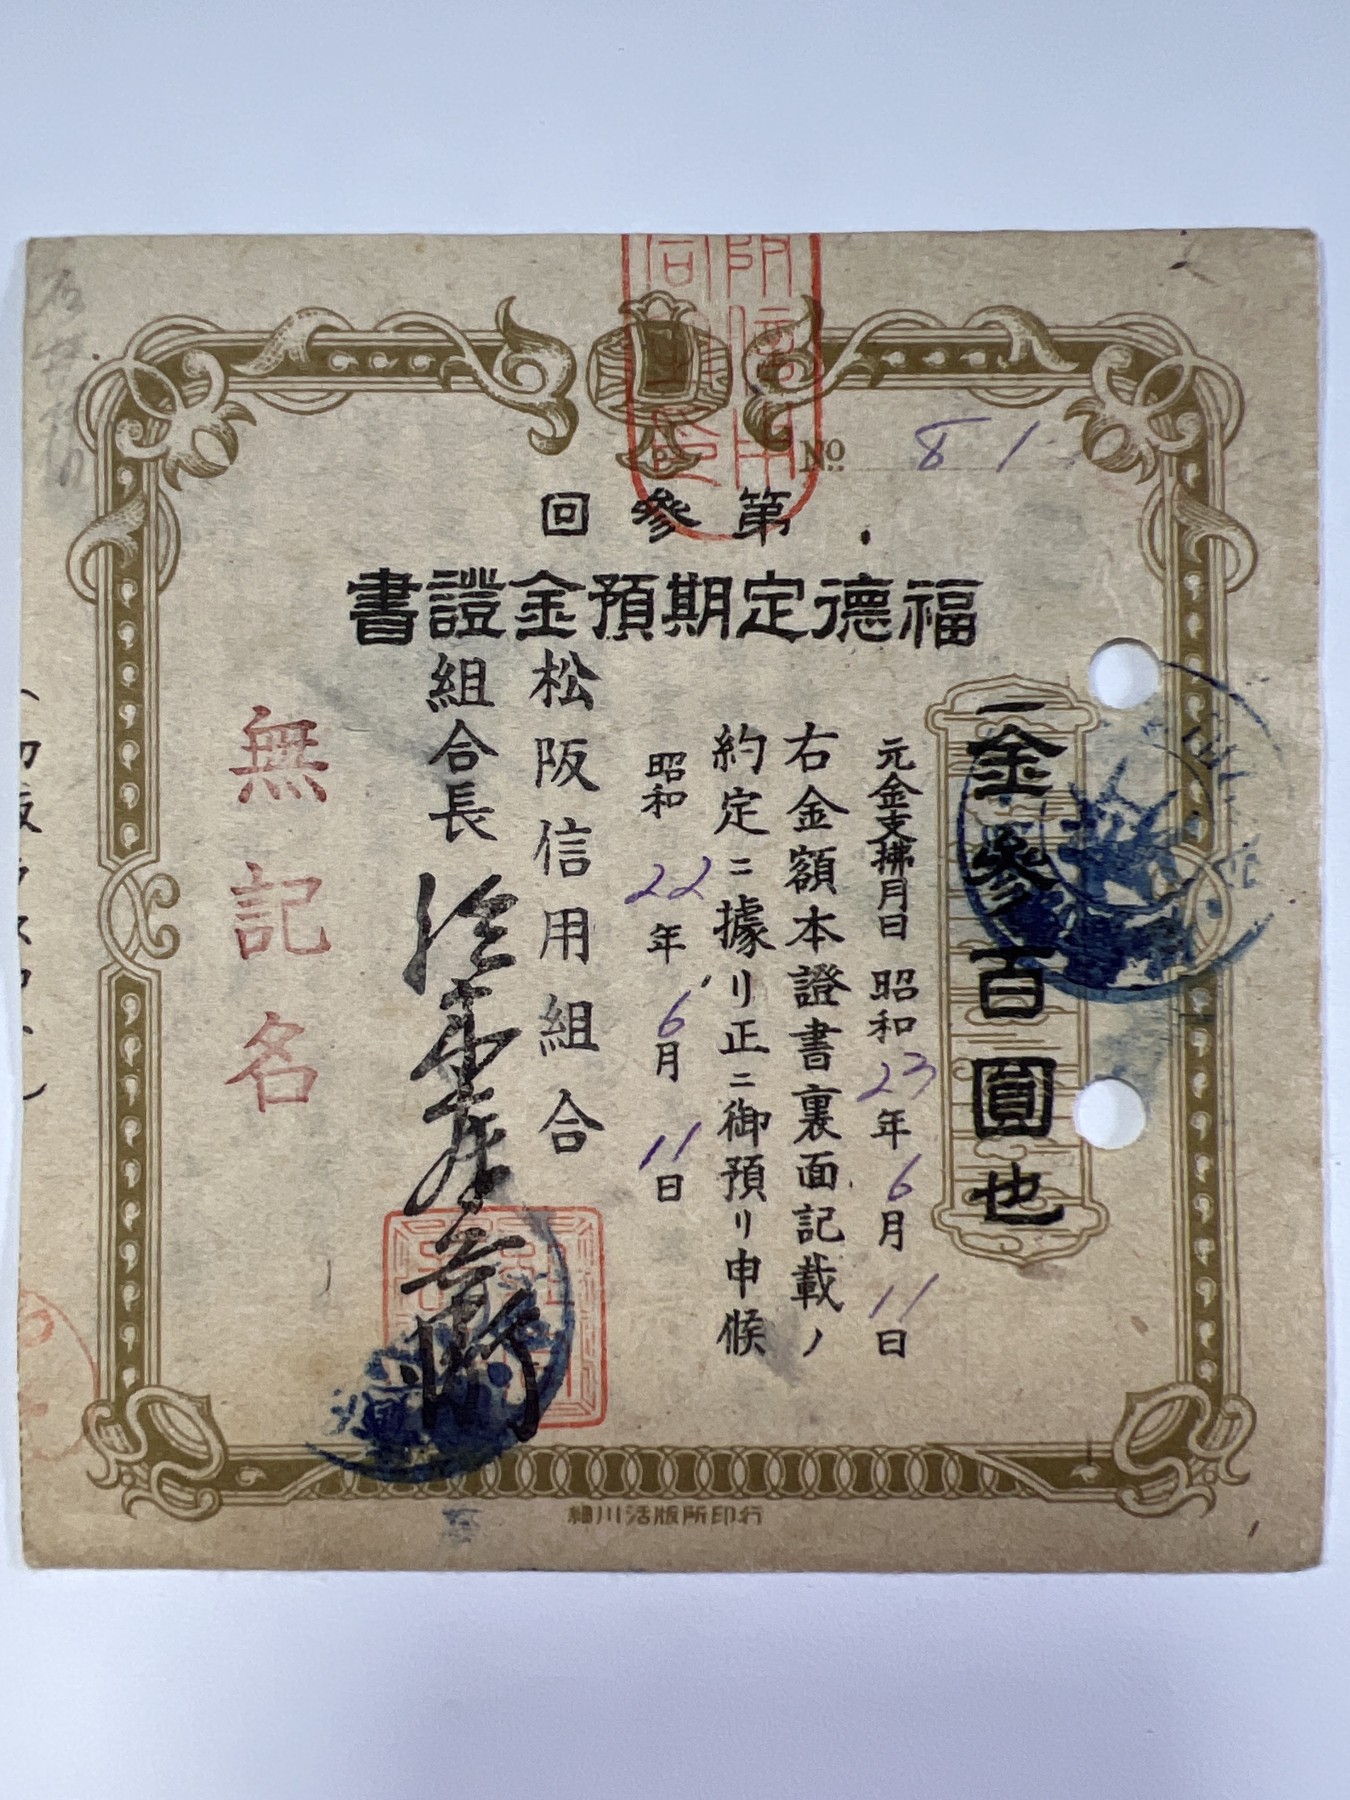 No. 81
第參回
福德定期預金證書
一金參百圓也
元金支拂月日 昭和23年6月11日
右金額本證書裏面記載ノ
約定ニ據リ正ニ御預リ申候
昭和22年6月11日
松阪信用組合
組合長
無記名
細川活版所印行